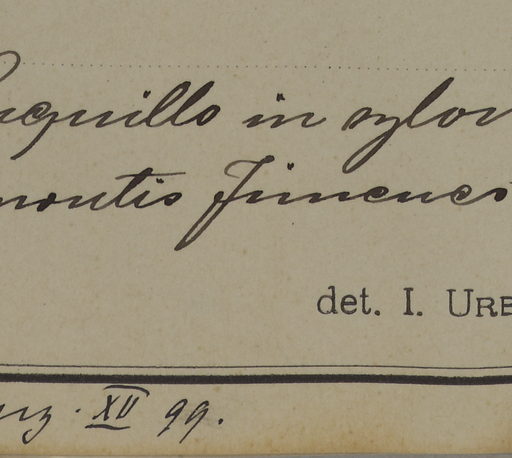 uquillo in sylv
montis Jimenes
det. I. URB
rz. XII 99.